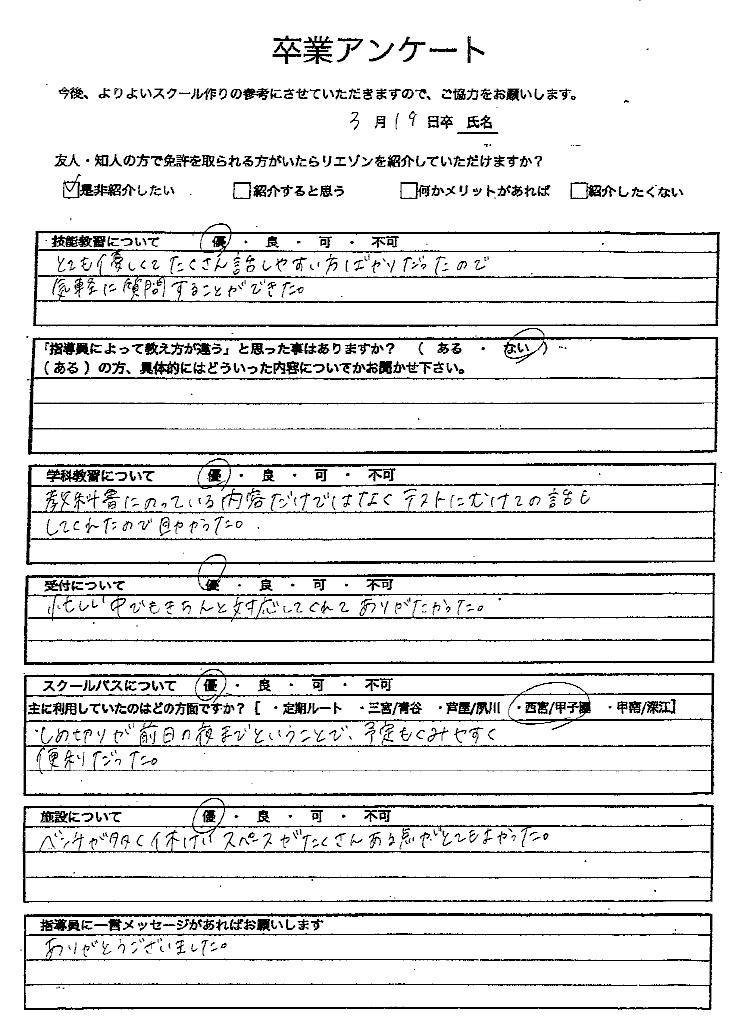 卒業アンケート
今後、よりよいスクール作りの参考にさせていただきますので、ご協力をお願いします。
3月19日卒 氏名
友人・知人の方で免許を取られる方がいたらリエゾンを紹介していただけますか?
☑是非紹介したい □紹介すると思う □何かメリットがあれば □紹介したくない
技能教習について 優 ・ 良 ・ 可 ・ 不可
とても優しくてたくさん話しやすい方ばかりだったので
気軽に質問することができた。
「指導員によって教え方が違う」と思った事はありますか? ( ある ・ ない )
(ある)の方、具体的にはどういった内容についてかお聞かせ下さい。
学科教習について 優 ・ 良 ・ 可 ・ 不可
教科書にのっている内容だけではなくテストにむけての話も
してくれたので助かった。
受付について 優 ・ 良 ・ 可 ・ 不可
忙しい中でもきちんと対応してくれてありがたかった。
スクールバスについて 優 ・ 良 ・ 可 ・ 不可
主に利用していたのはどの方面ですか? [ ・定期ルート ・三宮/青谷 ・芦屋/夙川 ・西宮/甲子園 ・甲南/深江]
しめ切りが前日の夜までということで、予定もくみやすく
便利だった。
施設について 優 ・ 良 ・ 可 ・ 不可
ベンチが多く休けいスペースがたくさんある点がとてもよかった。
指導員に一言メッセージがあればお願いします
ありがとうございました。